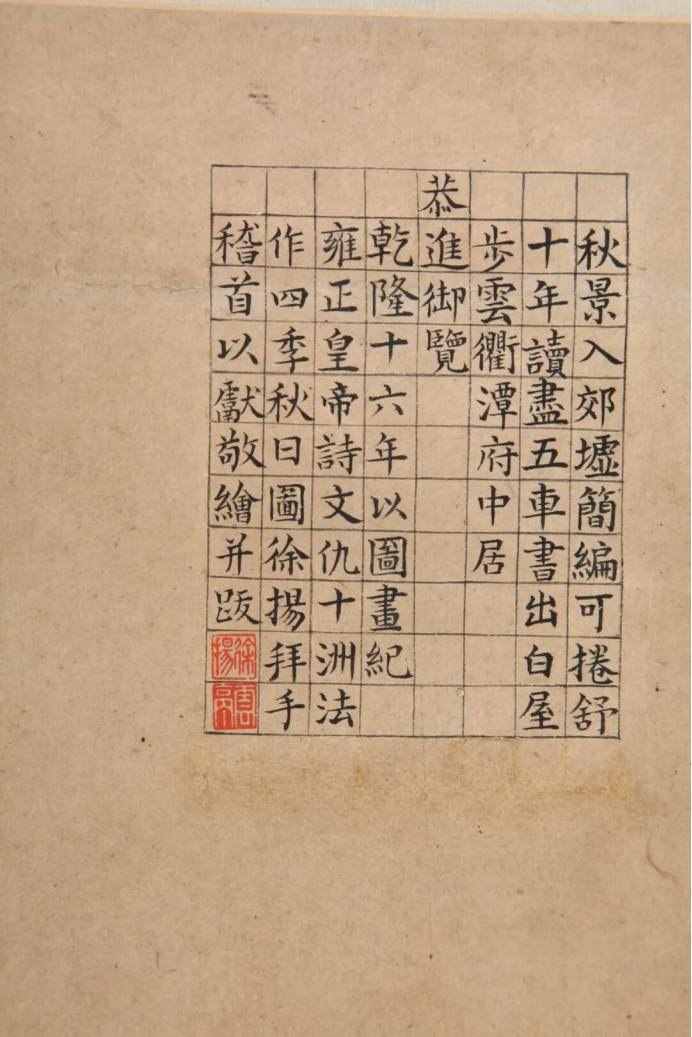 秋景入郊墟簡編可捲舒
十年讀盡五車書出白屋
步雲衢潭府中居
恭進御覽
乾隆十六年以圖畫紀
雍正皇帝詩文仇十洲法
作四季秋日圖徐揚拜手
稽首以獻敬繪并跋
徐揚